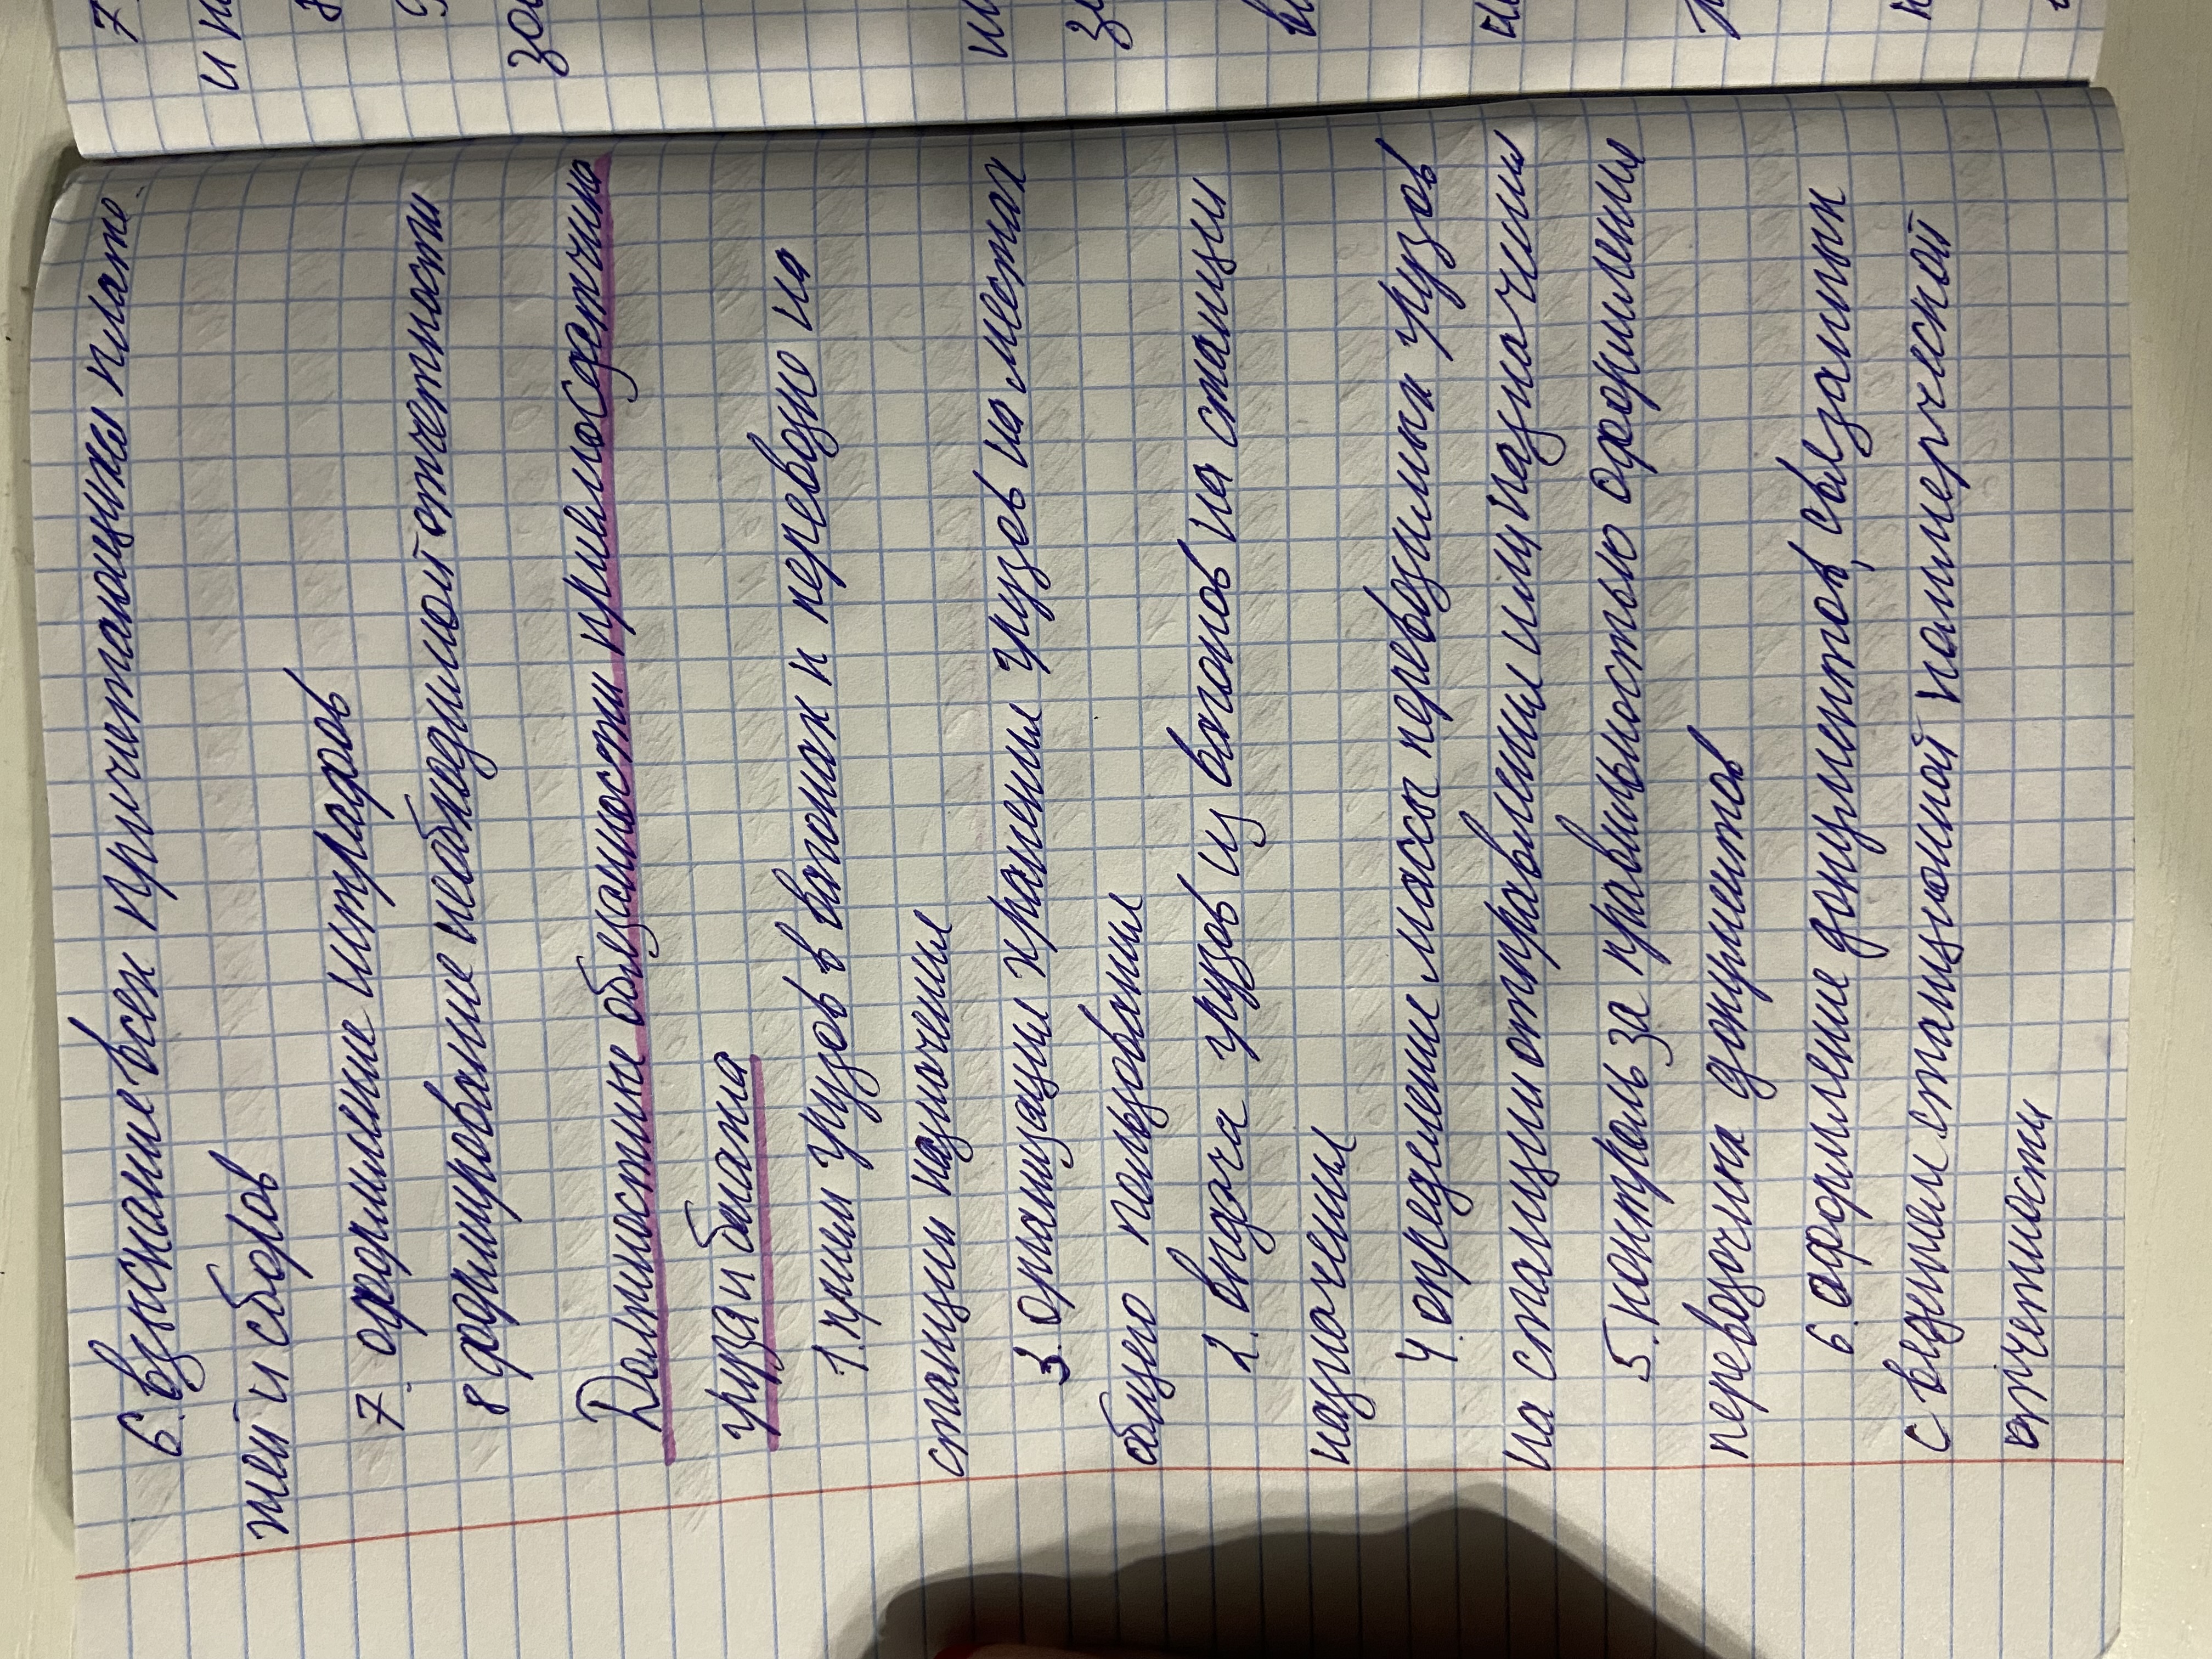 6. взыскание всех причитающихся плате-
жей и сборов
7. оформление штрафов
8 формирование необходимой отчетности
Должностные обязанности приемосдатчика
груза и багажа
1. прием грузов в вагонах к перевозке на
станции назначения
3. организация хранения грузов на местах
общего пользования
2. выдача грузов из вагонов на станции
назначения
4. определение массы перевозимых грузов
на станции отправления или назначения
5. контроль за правильностью оформления
перевозочных документов
6. оформление документов, связанных
с ведением станционной коммерческой
отчетности
7
и
за